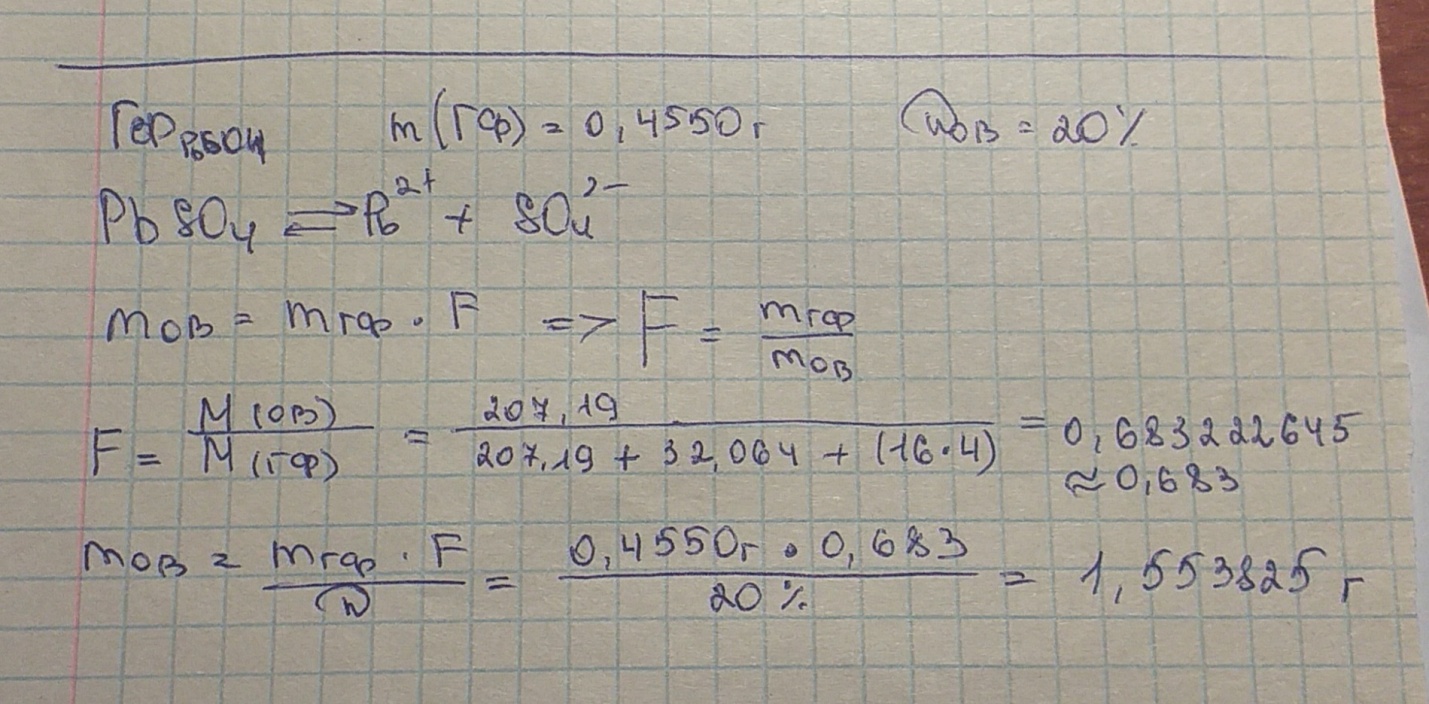 Гер PbSO4 m(ГФ) = 0,4550 г ωов = 20%
PbSO4 ⇌ Pb²⁺ + SO4²⁻
mов = mгф · F => F = mгф / mов
F = M(ов) / M(гф) = 207,19 / 207,19 + 32,064 + (16·4) = 0,683222645
≈ 0,683
mов = mгф · F / ω = 0,4550г · 0,683 / 20% = 1,553825 г